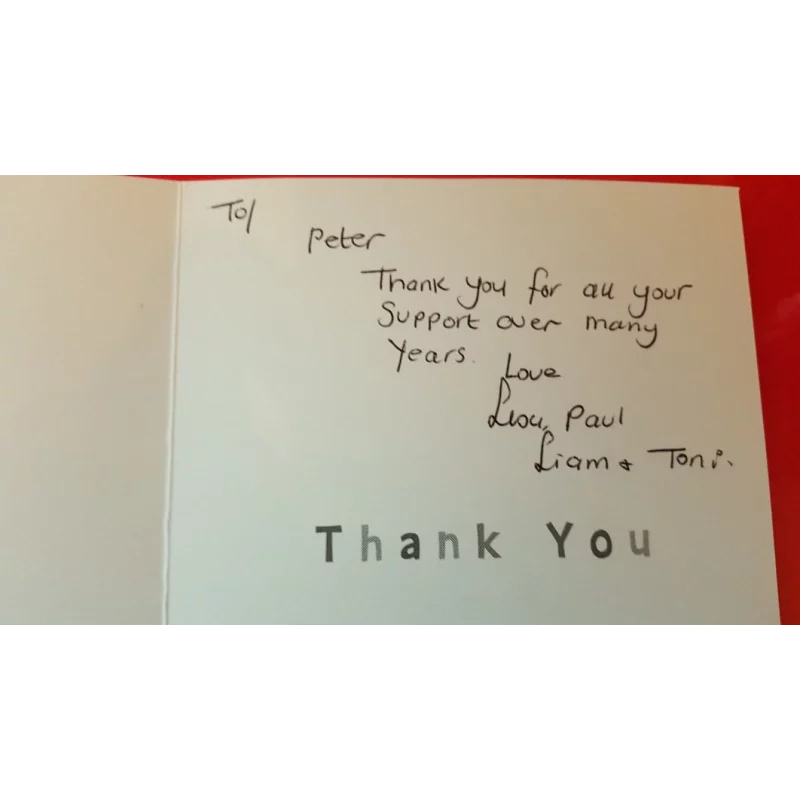 To/
Peter
Thank you for all your
Support over many
Years.
Love
Paul
Liam & Toni.
Thank You